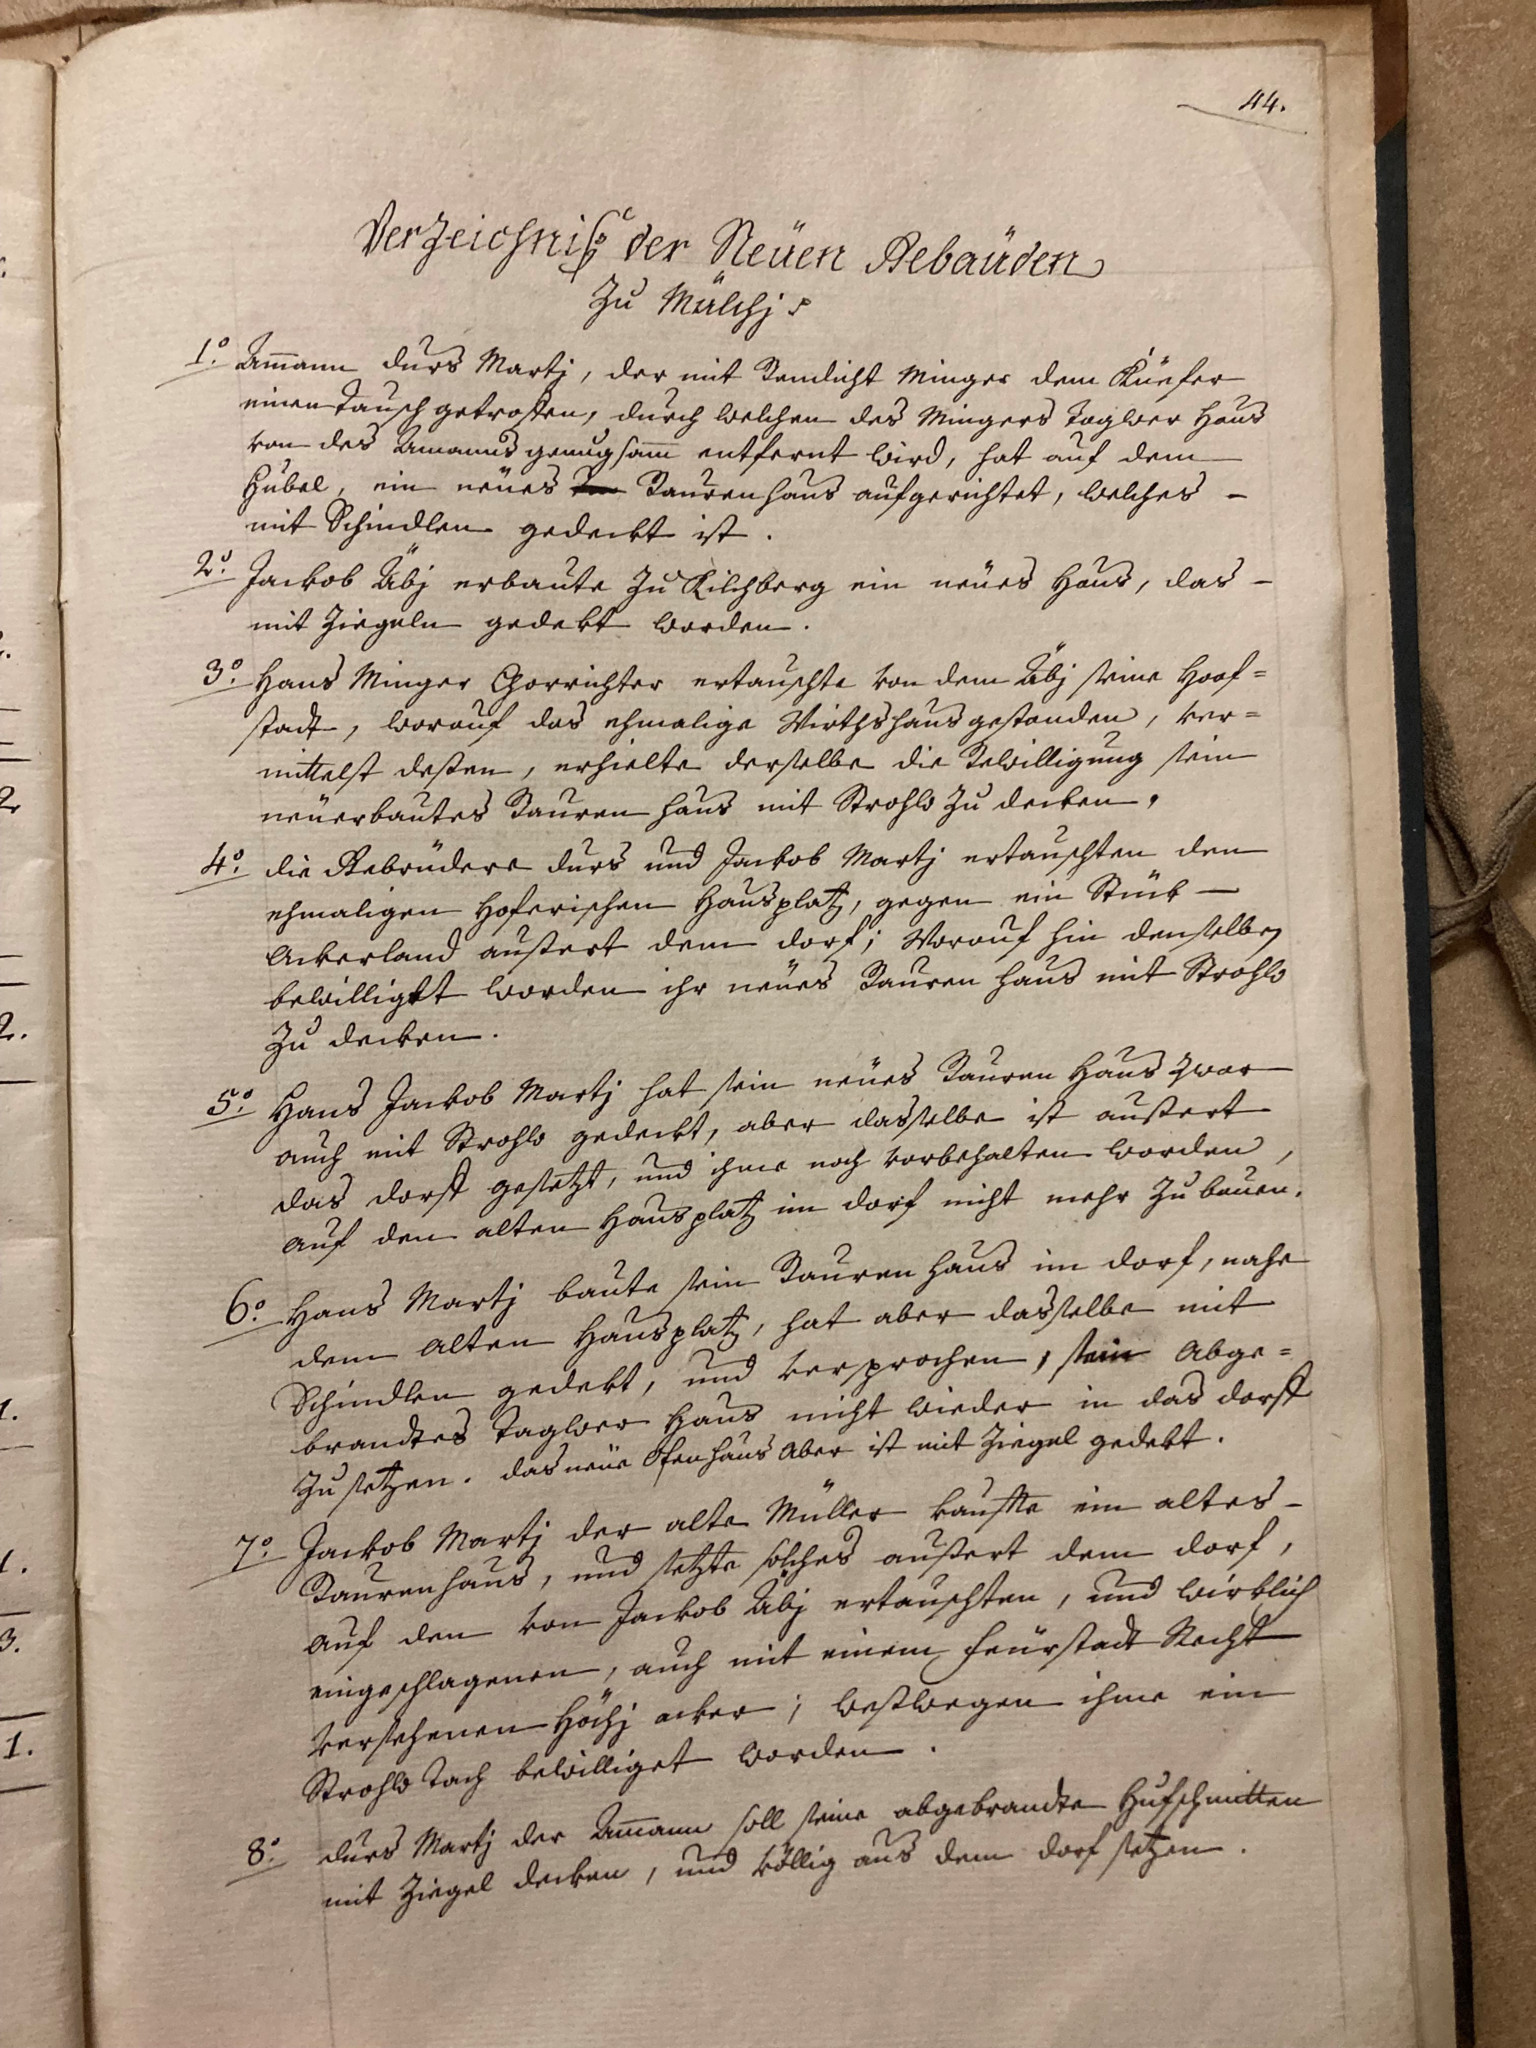 44.
Verzeichniß der Neüen Gebaüden
Zu Mülchj.
1.º Am̄ann Durs Martj, der mit Bendicht Minger dem Küefer
einen Tausch getroffen, durch welchen des Mingers Tagwer Haus
von des Amanns genugsam̄ entfernt wird, hat auf dem
Hubel, ein neües Baurenhaus aufgerichtet, welches –
mit Schindlen gedeckt ist.
2.º Jackob Äbj erbaute Zu Kilchberg ein neües Haus, das –
mit Ziegeln gedekt worden.
3.º Hans Minger Chorrichter ertauschte von dem Äbj seine Hoof=
stadt, worauf das ehmalige Wirthshaus gestanden, ver=
mittelst dessen, erhielte derselbe die Bewilligung sein
neüerbautes Bauren haus mit Strohw Zu decken.
4.º die Gebrüdere Durs und Jackob Martj ertauschten den
ehmaligen Hoferischen Hausplatz, gegen ein Stük –
Ackerland aussert dem dorf; Worauf hin denselben
bewilligt worden ihr neües Bauren haus mit Strohw
Zu decken.
5.º Hans Jackob Martj hat sein neües Bauren Haus zwar
auch mit Strohw gedeckt, aber dasselbe ist aussert
das dorff gesetzt, und ihme noch vorbehalten worden,
auf den alten Hausplatz im dorf nicht mehr Zu bauen.
6.º Hans Martj baute sein Bauren haus im dorf, nahe
dem alten Hausplatz, hat aber dasselbe mit
Schindlen gedekt, und versprochen, sein Abge=
brandtes Tagwer Haus nicht wieder in das dorff
Zu setzen. das neüe Ofenhaus Aber ist mit Ziegel gedekt.
7.º Jackob Martj der alte Müller kauffte ein altes –
Baurenhaus, und setzte solches aussert dem dorf,
auf den von Jackob Äbj ertauschten, und wirklich
eingeschlagenen, auch mit einem Feürstadt Recht
versehenen Höchj acker; wesswegen ihme ein
Strohw Tach bewilliget worden.
8.º Durs Martj der Am̄ann soll seine abgebrandte Hufschmitten
mit Ziegel decken, und völlig aus dem dorf setzen.